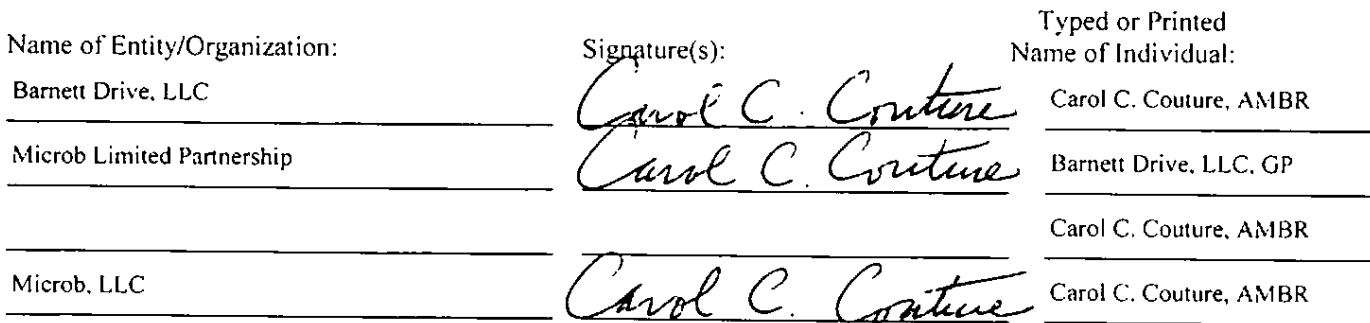 Typed or Printed
Name of Entity/Organization: Signature(s): Name of Individual:
Barnett Drive, LLC Carol C. Couture Carol C. Couture, AMBR
Microb Limited Partnership Carol C. Couture Barnett Drive, LLC, GP
Carol C. Couture, AMBR
Microb, LLC Carol C. Couture Carol C. Couture, AMBR